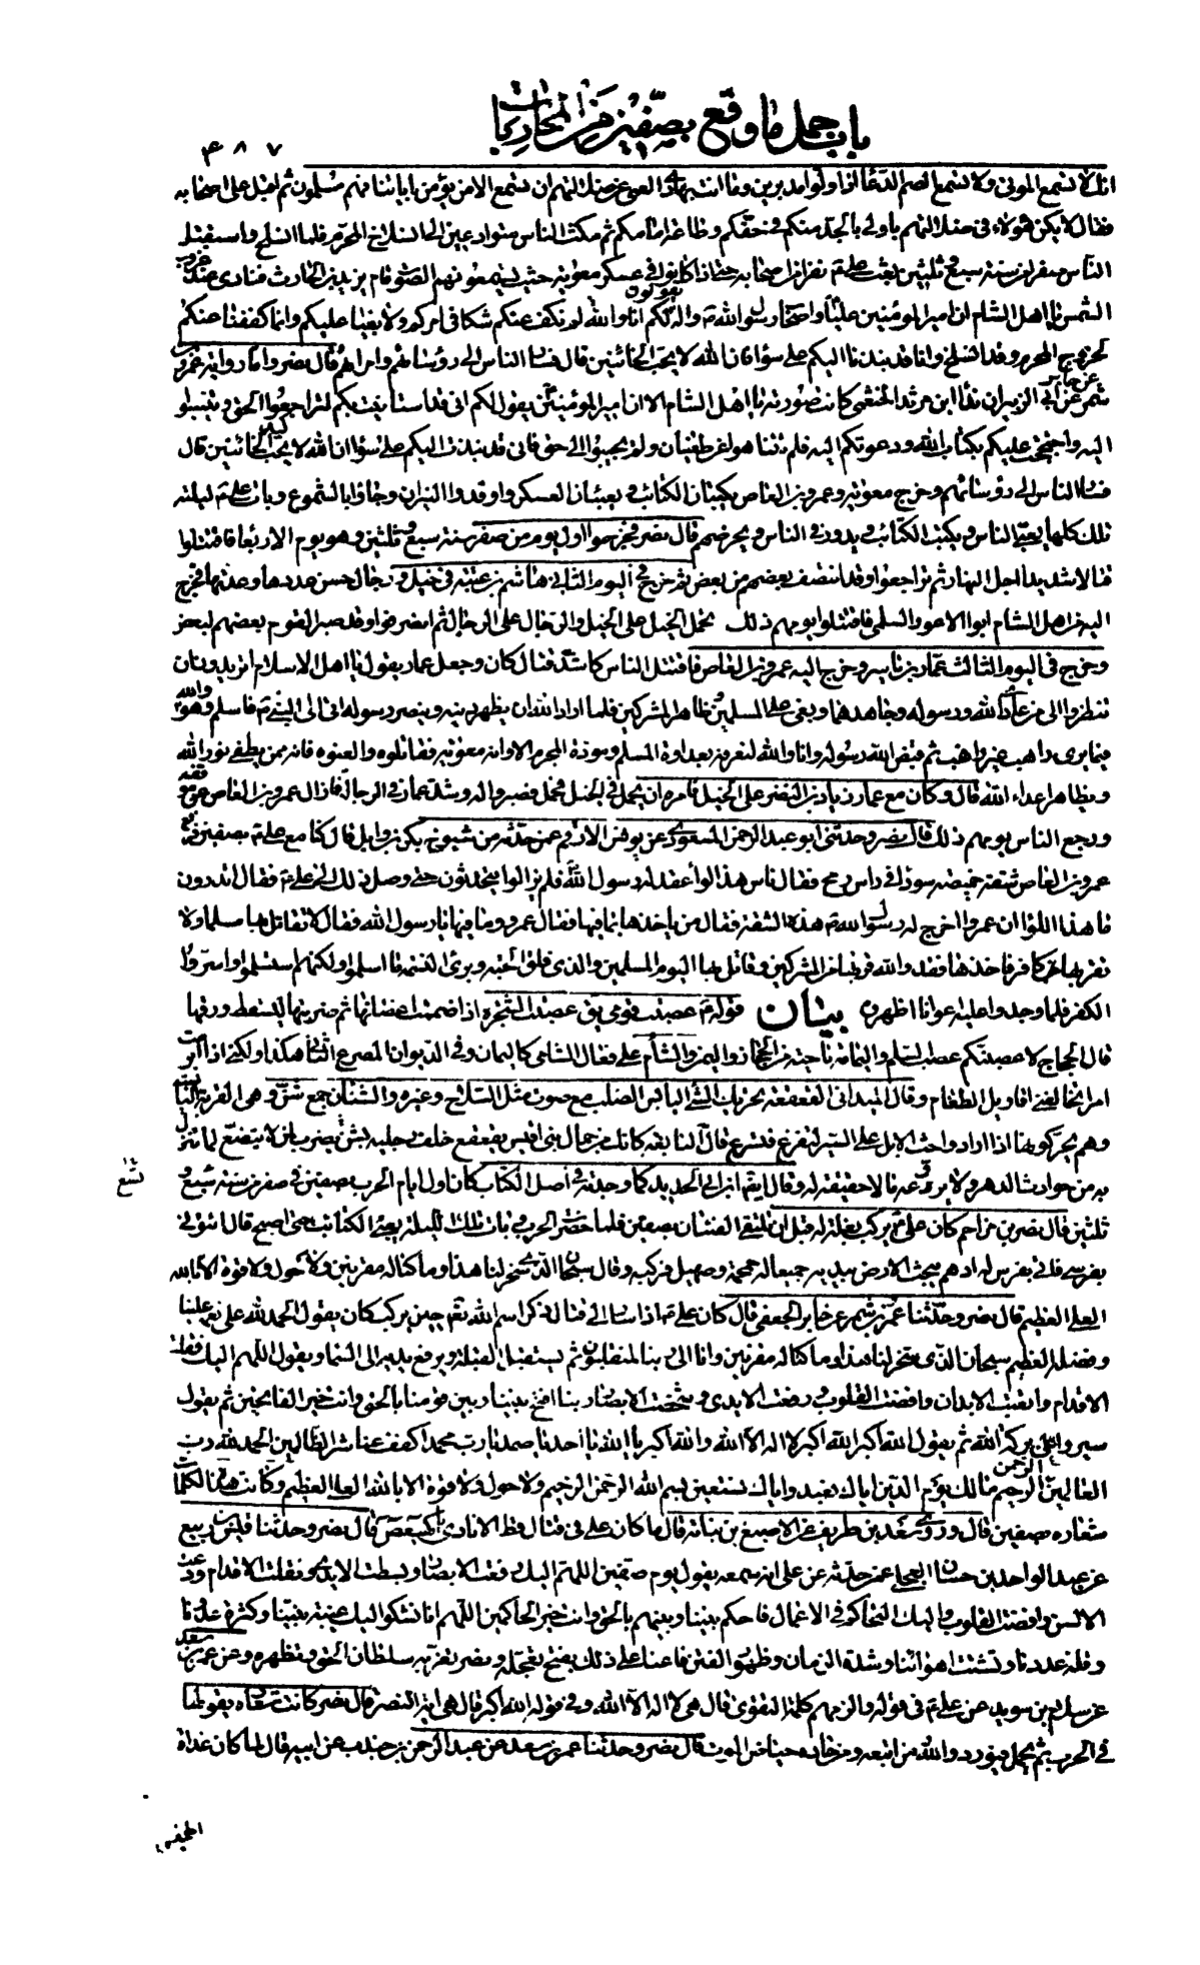 باب جمل ما وقع بصفين من المحاربات
٤٨٧
انك لا تسمع الموتى ولا تسمع الصم الدعاء اذا ولوا مدبرين وما انت بهادي العمى عن ضلالتهم ان تسمع الا من يؤمن باياتنا فهم مسلمون ثم اقبل على اصحابه
فقال لا يكن هؤلاء في ضلالتهم باولى بالجد منكم في حقكم وطاعة امامكم ثم مكث الناس متوادعين الى انسلاخ المحرم فلما انسلخ واستقبل
الناس صفر من سنة سبع وثلثين بعث علي ع نفرا من اصحابه حتى اذا كانوا في عسكر معوية حيث يسمعونهم الصوت قام يزيد بن الحارث فنادى عند غروب
الشمس يا اهل الشام ان امير المؤمنين عليا واصحاب رسول الله ص واله يقولون لكم انا والله لم نكف عنكم شكا في امركم ولا بقيا عليكم وانما كففنا عنكم
لخروج المحرم وقد انسلخ وانا قد نبذنا اليكم على سواء ان الله لا يحب الخائنين قال فثار الناس الى رؤسائهم وامرائهم قال نصر واما رواية عمرو بن
شمر عن جابر عن ابي الزبير ان نداء ابن مرثد الخثعمي كانت صورته يا اهل الشام الا ان امير المؤمنين يقول لكم اني قد استانيت بكم لتراجعوا الحق وتنيبوا
اليه واحتججت عليكم بكتاب الله ودعوتكم اليه فلم تتناهوا عن طغيان ولم تجيبوا الى حق فاني قد نبذت اليكم على سواء ان الله لا يحب كيد الخائنين قال
فثار الناس الى رؤسائهم وخرج معوية وعمرو بن العاص يكتبان الكتائب ويعبيان العسكر واوقدوا النيران وجاؤا بالشموع وبات علي ع ليلته
تلك كلها يعبي الناس ويكتب الكتائب ويدور في الناس ويحرضهم قال نصر فخرجوا اول يوم من صفر سنة سبع وثلثين وهو يوم الاربعا فاقتتلوا
قتالا شديدا جل النهار ثم تراجعوا وقد انتصف بعضهم من بعض ثم خرج في اليوم الثاني هاشم بن عتبة في خيل ورجال حسن عددها وعدتها فخرج
اليه من اهل الشام ابو الاعور السلمي فاقتتلوا يومهم ذلك يحمل الخيل على الخيل والرجال على الرجال ثم انصرفوا وقد صبر القوم بعضهم لبعض
وخرج في اليوم الثالث عمار بن ياسر وخرج اليه عمرو بن العاص فاقتتل الناس كاشد قتال كان وجعل عمار يقول يا اهل الاسلام اتريدون ان
تنظروا الى من عادى الله ورسوله وجاهدهما وبغى على المسلمين وظاهر المشركين فلما اراد الله ان يظهر دينه وينصر رسوله اتى الى النبي ص فاسلم وهو والله
فيما يرى راهب غير راغب ثم قبض الله رسوله وانا والله لنعرفه بعداوة المسلم ومودة المجرم الا وانه معوية فقاتلوه والعنوه فانه ممن يطفئ نور الله
ويظاهر اعداء الله قال وكان مع عمار زياد بن النضر على الخيل فامره ان يحمل في الخيل فحمل فصبروا له وشد عمار في الرجالة فازال عمرو بن العاص عن موقفه
ورجع الناس يومهم ذلك قال نصر وحدثني ابو عبد الرحمن المسعودي عن يونس الارقم عمن حدثه من شيوخ بكر بن وايل قال كنا مع علي ع بصفين فرفع
عمرو بن العاص شقة خميصة سوداء في راس رمح فقال ناس هذا لواء عقده له رسول الله ص فلم يزالوا يتحدثون حتى وصل ذلك الى علي ع فقال اتدرون
ما هذا اللواء ان عمروا اخرج له رسول الله ص هذه الشقة فقال من ياخذها بما فيها فقال عمرو وما فيها يا رسول الله فقال لا تقاتل بها مسلما ولا
تفر بها من كافر فاخذها فقد والله فر بها من المشركين وقاتل بها اليوم المسلمين والذي فلق الحبة وبرئ النسمة ما اسلموا ولكنهم استسلموا واسروا
الكفر فلما وجدوا عليه اعوانا اظهروه بيان قوله ع عصبت قومي يق عصبت الشجرة اذا ضممت اغصانها ثم ضربتها ليسقط ورقها
قال الحجاج لاعصبنكم عصب السلم واليمانة ناحية من الحجاز واليمن والشام على فقال الشامي كاليمان وفي الديوان المصرع الثاني هكذا ولكني اذا ابرمت
امرا تخالفني اقاويل الطغام وقال الميداني القعقعة تحريك الشئ اليابس الصلب مع صوت مثل السلاح وغيره والشنان جمع شن وهي القربة البالية
وهم يحركونها اذا ارادوا حث الابل على السير لتفزع فتسرع قال النابغة كانك من جمال بني اقيس يقعقع خلف رجليه بشن يضرب لمن لا يتضع لما ينزل
به من حوادث الدهر ولا يروعه ما لا حقيقة له وقال ابن ابي الحديد كما وجدته في اصل الكتاب كان اول ايام الحرب بصفين في صفر من سنة سبع و
ثلثين قال نصر بن مزاحم كان علي ع يركب بغلة له قبل ان تلتقي الفئتان بصفين فلما حضرت الحرب وبات تلك الليلة يعبئ الكتائب حتى اصبح قال ائتوني
بفرسي فاتي بفرس له ادهم يبحث الارض بيديه جميعا له حمحمة وصهيل فركبه وقال سبحان الذي سخر لنا هذا وما كنا له مقرنين ولا حول ولا قوة الا بالله
العلي العظيم قال نصر وحدثنا عمرو بن شمر عن جابر الجعفي قال كان علي ع اذا سار الى قتال ذكر اسم الله تعم حين يركب كان يقول الحمد لله على نعمه علينا
وفضله العظيم سبحان الذي سخر لنا هذا وما كنا له مقرنين وانا الى ربنا لمنقلبون ثم يستقبل القبلة ويرفع يديه الى السماء ويقول اللهم اليك نقلت
الاقدام واتعبت الابدان وافضت القلوب ورفعت الايدي وشخصت الابصار ربنا افتح بيننا وبين قومنا بالحق وانت خير الفاتحين ثم يقول
سيروا على بركة الله ثم يقول الله اكبر الله اكبر لا اله الا الله والله اكبر يا الله يا احد يا صمد يا رب محمد اكفف عنا شر الظالمين الحمد لله رب
العالمين الرحمن الرحيم مالك يوم الدين اياك نعبد واياك نستعين بسم الله الرحمن الرحيم ولا حول ولا قوة الا بالله العلي العظيم وكانت هذه الكلمات
شعاره بصفين قال وروى سعد بن طريف عن الاصبغ بن نباتة قال ما كان علي في قتال قط الا نادى يا كهيعص قال نصر وحدثنا قيس بن ربيع
عن عبد الواحد بن حسان العجلي عمن حدثه عن علي انه سمعه يقول يوم صفين اللهم اليك رفعت الابصار وبسطت الايدي ونقلت الاقدام ودعت
الالسن وافضت القلوب واليك التحاكم في الاعمال فاحكم بيننا وبينهم بالحق وانت خير الحاكمين اللهم انا نشكو اليك غيبة نبينا وكثرة عدونا
وقلة عددنا وتشتت اهوائنا وشدة الزمان وظهور الفتن فاعنا على ذلك بفتح تعجله ونصر تعز به سلطان الحق وتظهره وعن عمرو بن سعد
عن سلام بن سويد عن علي ع في قوله والزمهم كلمة التقوى قال هي لا اله الا الله وفي قوله الله اكبر قال هي اية النصر قال نصر كانت شعاره يقولها
في الحرب ثم يحمل فيورد والله من اتبعه ومن حاده حياض الموت قال نصر وحدثنا عمرو بن سعد عن عبد الرحمن بن جندب عن ابيه قال لما كان غداة
تسع
الخميس